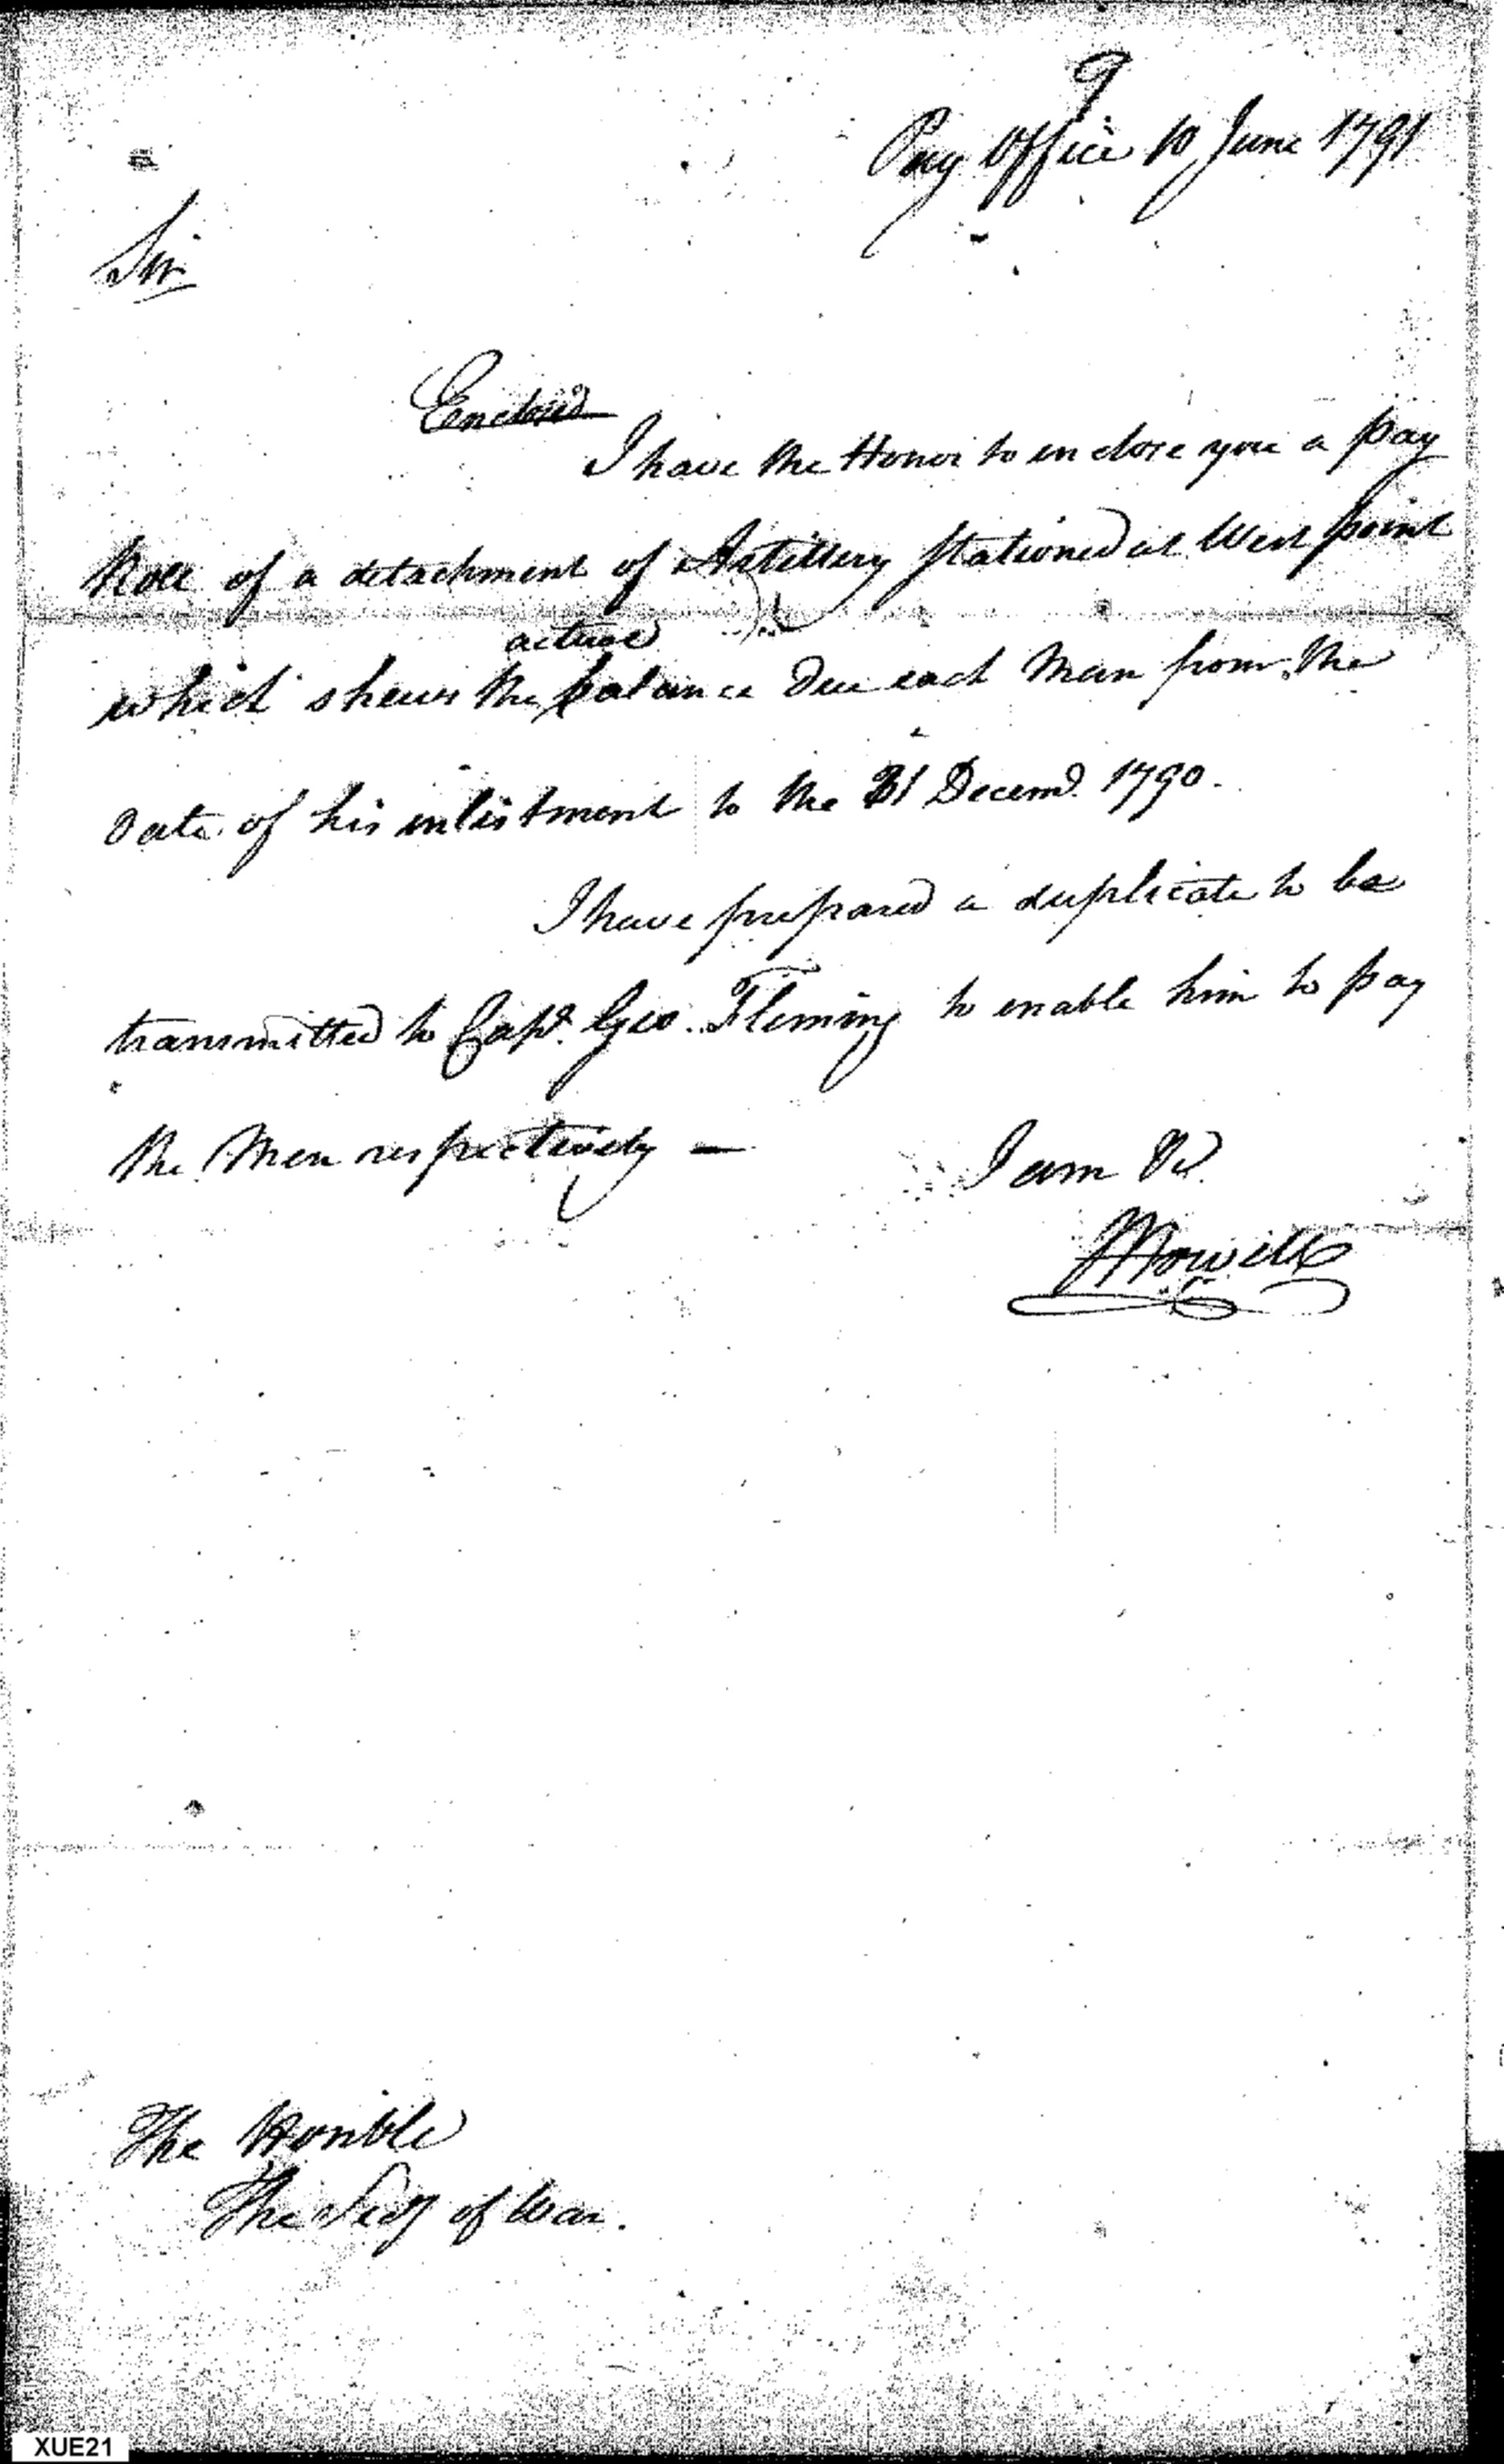 9
Pay Office 10 June 1791
Sir
Enclosed
I have the Honor to enclose you a pay
Role of a detachment of Artillery stationed at West point
actual
which shews the balance due each Man from the
date of his inlistment to the 31 Decemr. 1790.
I have prepared a duplicate to be
transmitted to Capt. Geo. Fleming to enable him to pay
the Men respectively —
I am &c.
JHowell
The Honble
The Secy of War.
XUE21